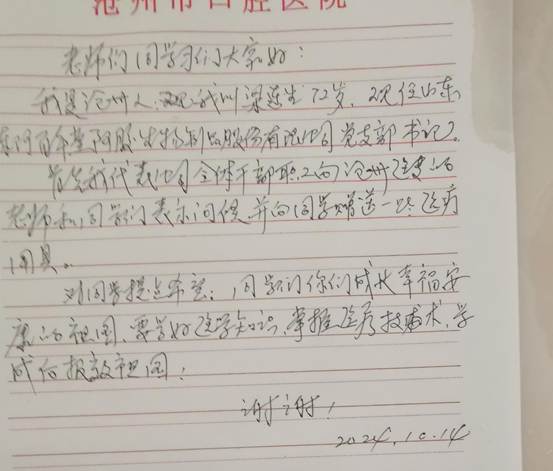 沧州市口腔医院
老师们同学们大家好：
我是沧州人，现我叫梁延生72岁，现任山东
东阿百年堂阿胶生物制品股份有限公司党支部书记。
首先我代表公司全体干部职工向沧州医专的
老师和同学们表示问候，并向同学赠送一些医疗
用具。
对同学提点希望：同学们你们成长幸福安
康的祖国，要学好医学知识，掌握医疗技术，学
成后报效祖国！
谢谢！
2024.10.14